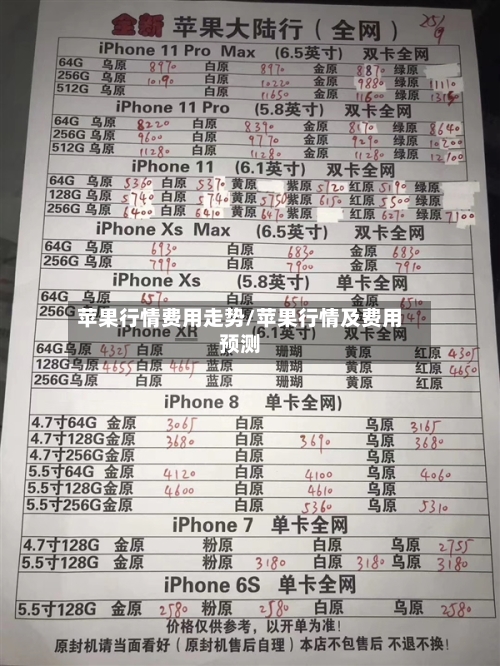 全新 苹果大陆行（全网） 25/9
iPhone 11 Pro Max （6.5英寸） 双卡全网
64G 乌原 8970 白原 8970 金原 8870 绿原
256G 乌原 10190 白原 10220 金原 9880 绿原 11110
512G 乌原 白原 11650 金原 11600 绿原
iPhone 11 Pro （5.8英寸） 双卡全网
64G 乌原 8220 白原 8390 金原 8170 绿原 8640
256G 乌原 9600 白原 9770 金原 9290 绿原 10200
512G 乌原 11280 白原 11280 金原 11280 绿原 12700
iPhone 11 （6.1英寸） 双卡全网
64G 乌原 5360 白原 5370 黄原 紫原 5720 红原 5190 绿原
128G 乌原 5740 白原 5740 黄原 5750 紫原 6150 红原 5500 绿原
256G 乌原 6400 白原 6410 黄原 6470 紫原 红原 6270 绿原 7100
iPhone Xs Max （6.5英寸） 双卡全网
64G 乌原 6930 白原 6830 金原 6830
256G 乌原 7990 白原 7900 金原 7910
iPhone Xs （5.8英寸） 单卡全网
64G 乌原 6570 白原 6510 金原 6510
256G 乌原
苹果行情费用走势/苹果行情及费用
预测
iPhone XR （6.1英寸） 双卡全网
64G 乌原 4325 白原 蓝原 珊瑚 黄原 红原 4305
128G 乌原 4655 白原 4665 蓝原 珊瑚 黄原 红原 4650
256G 乌原 白原 蓝原 珊瑚 黄原 红原
iPhone 8 单卡全网)
4.7寸64G 金原 3065 白原 乌原 3165
4.7寸128G 金原 3680 白原 3690 乌原 3680
4.7寸256G 金原 白原 乌原
5.5寸64G 金原 4120 白原 4100 乌原 4060
5.5寸128G 金原 4600 白原 4610 乌原
5.5寸256G 金原 白原 5360 乌原 5310
iPhone 7 单卡全网
4.7寸128G 金原 粉原 白原 乌原 2755
5.5寸128G 金原 粉原 3180 白原 3180 乌原 3180
iPhone 6S 单卡全网
5.5寸128G 金原 2580 粉原 2580 白原 乌原 2580
价格仅供参考，以开单为准！
原封机请当面看好（原封机售后自理）本店不包售后 不退不换！